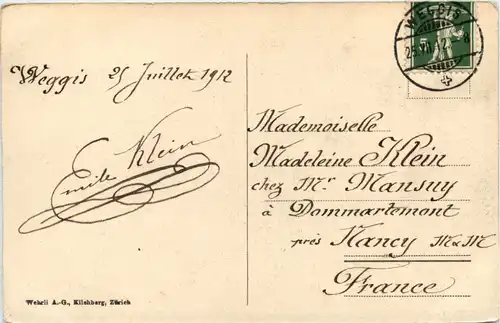 WEGGIS
25.VII.12
8
Weggis 25 Juillet 1912
Emile Klein
Mademoiselle
Madeleine Klein
chez Mr. Mansuy
à Dommartemont
près Nancy M & M
France
Wehrli A.-G., Kilchberg, Zürich